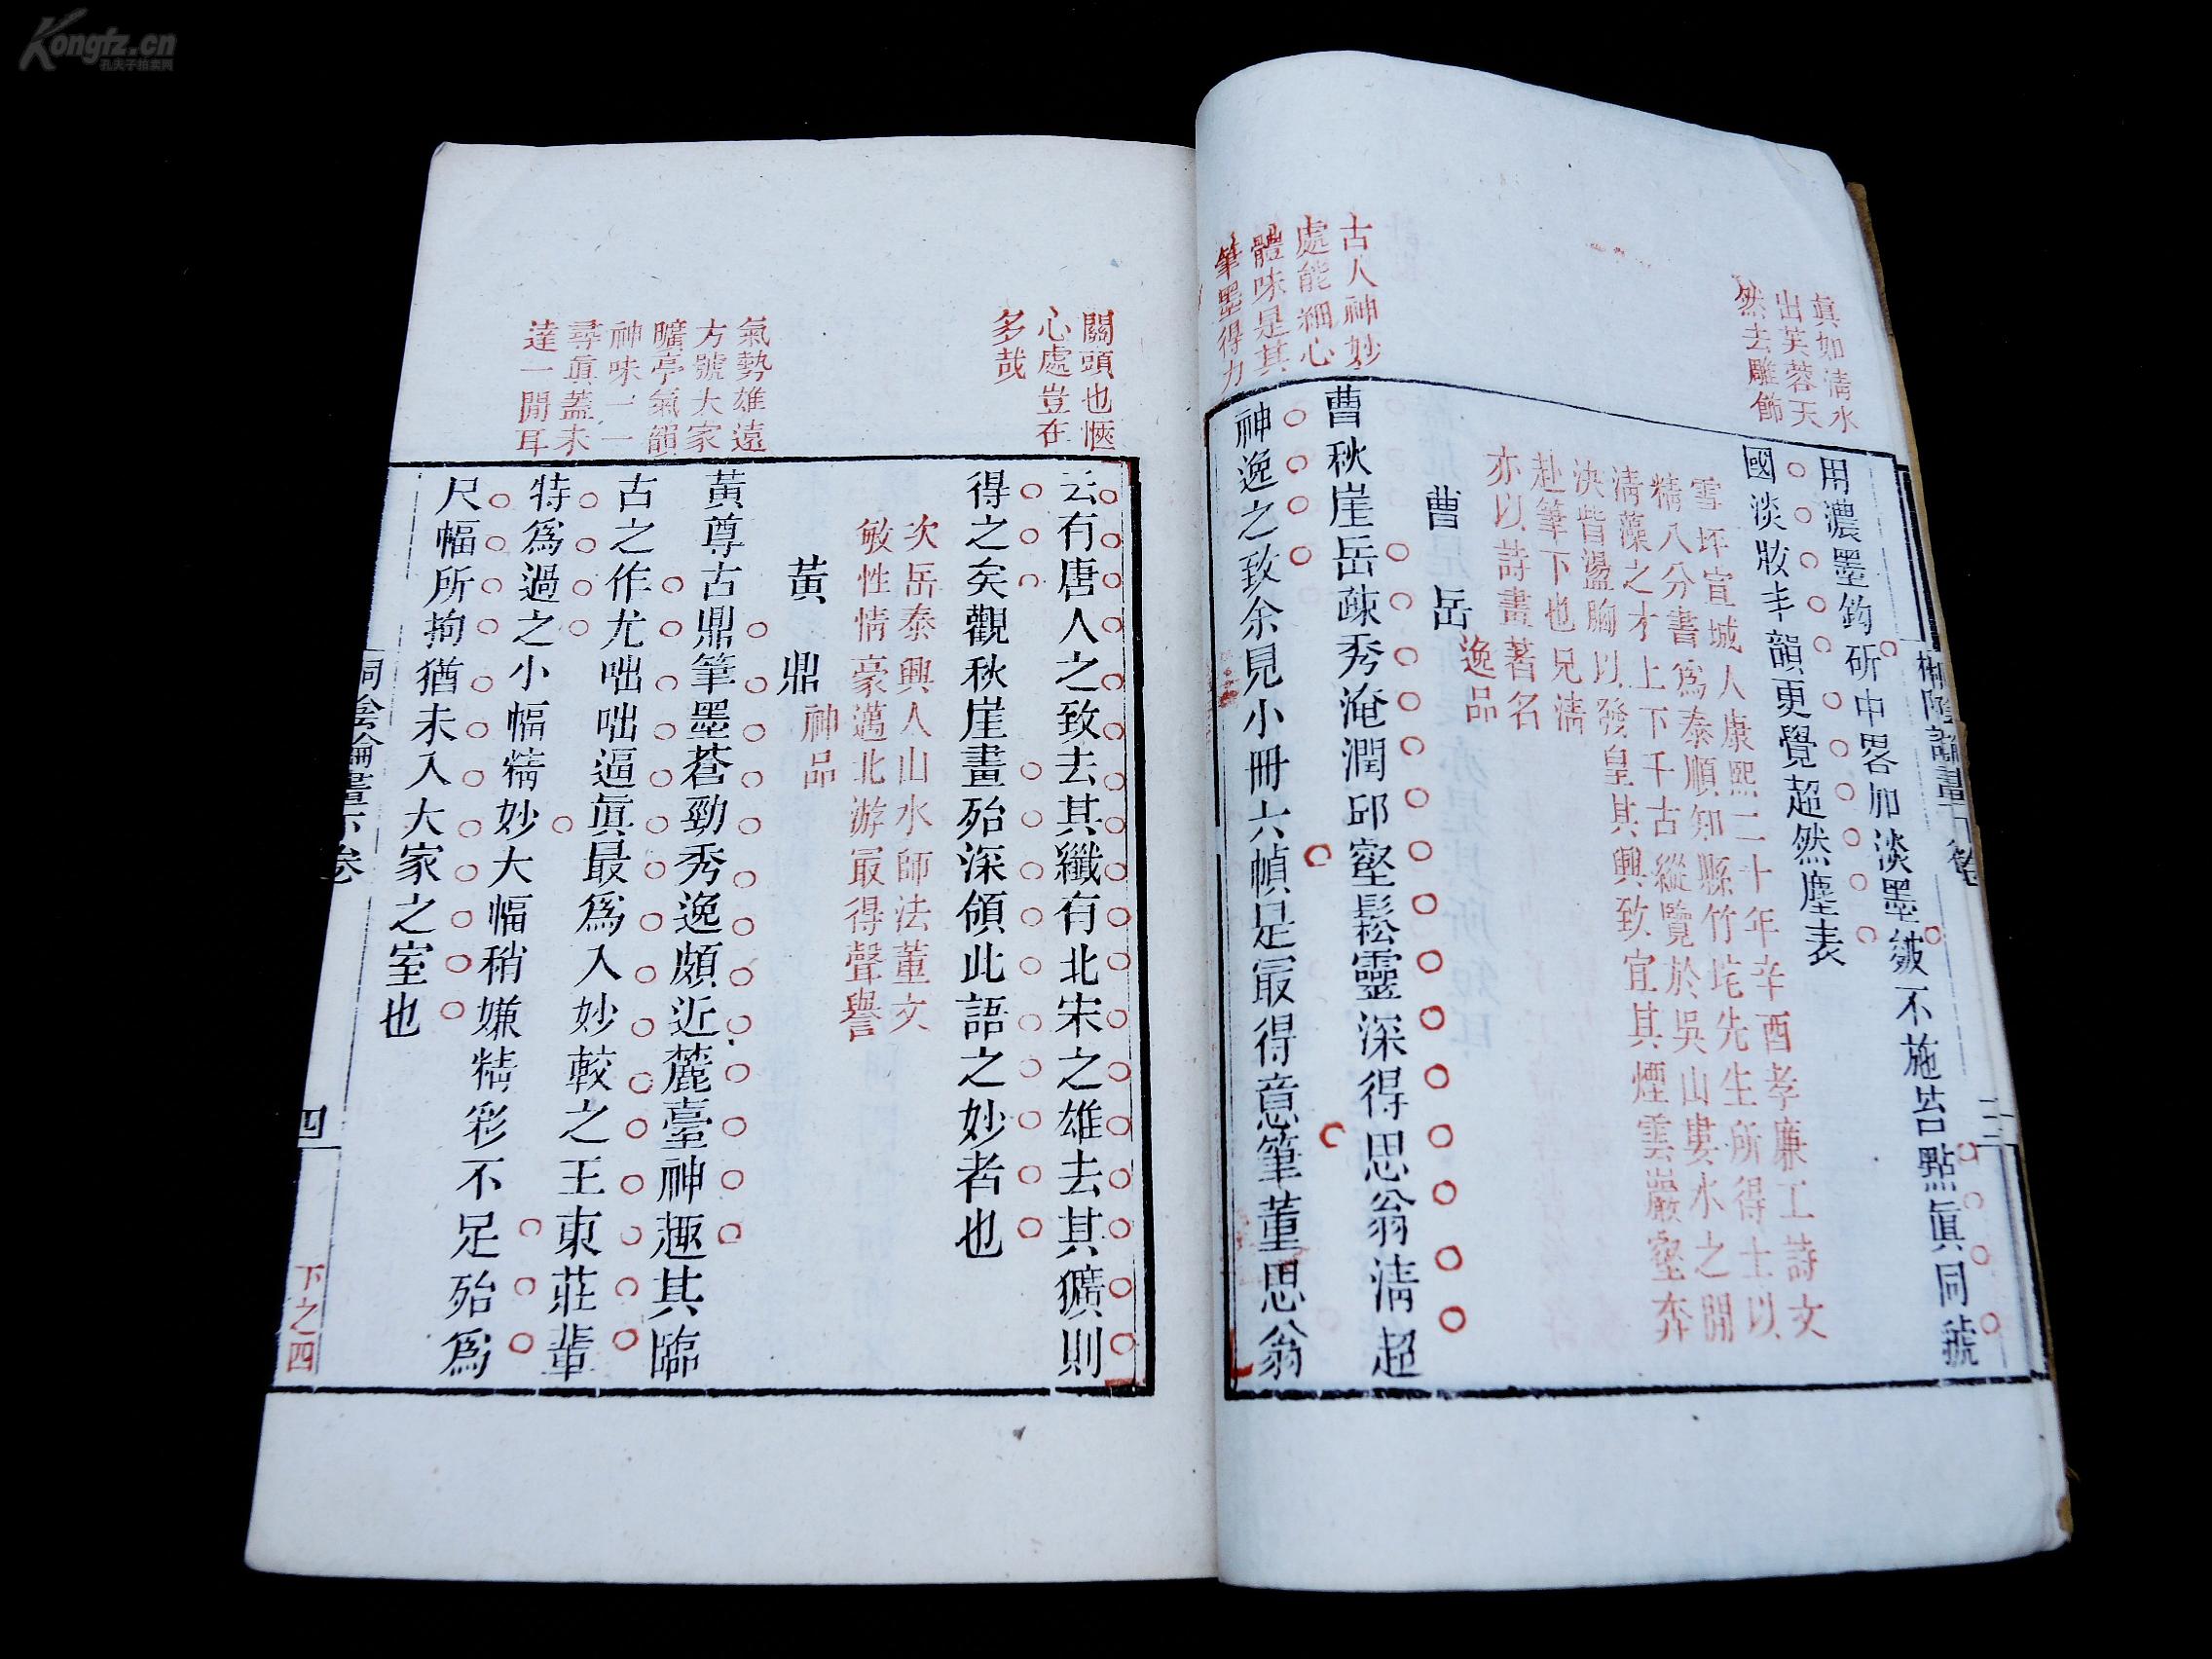 Kongfz.cn
孔夫子拍卖网
眞如淸水
出芙蓉天
然去雕飾
用濃墨鈎斫中畧加淡墨皴不施苔點眞同虢
國淡妝丰韻更覺超然塵表
雪坪宣城人康熙二十年辛酉孝廉工詩文
精八分書爲泰順知縣竹垞先生所得士以
淸藻之才上下千古縱覽於吳山婁水之間
決眥盪胸以發皇其興致宜其煙雲巖壑奔
赴筆下也兄淸
亦以詩畫著名
古人神妙
處能細心
體味是其
筆墨得力
曹岳 逸品
曹秋崖岳疎秀淹潤邱壑鬆靈深得思翁淸超
神逸之致余見小冊六幀是最得意筆董思翁
關頭也愜
心處豈在
多哉
云有唐人之致去其纖有北宋之雄去其獷則
得之矣觀秋崖畫殆深領此語之妙者也
次岳泰興人山水師法董文
敏性情豪邁北游最得聲譽
黃鼎 神品
氣勢雄遠
方號大家
曠亭氣韻
神味一一
尋眞蓋未
達一間耳
黃尊古鼎筆墨蒼勁秀逸頗近麓臺神趣其臨
古之作尤咄咄逼眞最爲入妙較之王東莊輩
特爲過之小幅精妙大幅稍嫌精彩不足殆爲
尺幅所拘猶未入大家之室也
桐陰論畫下卷
四
下之四